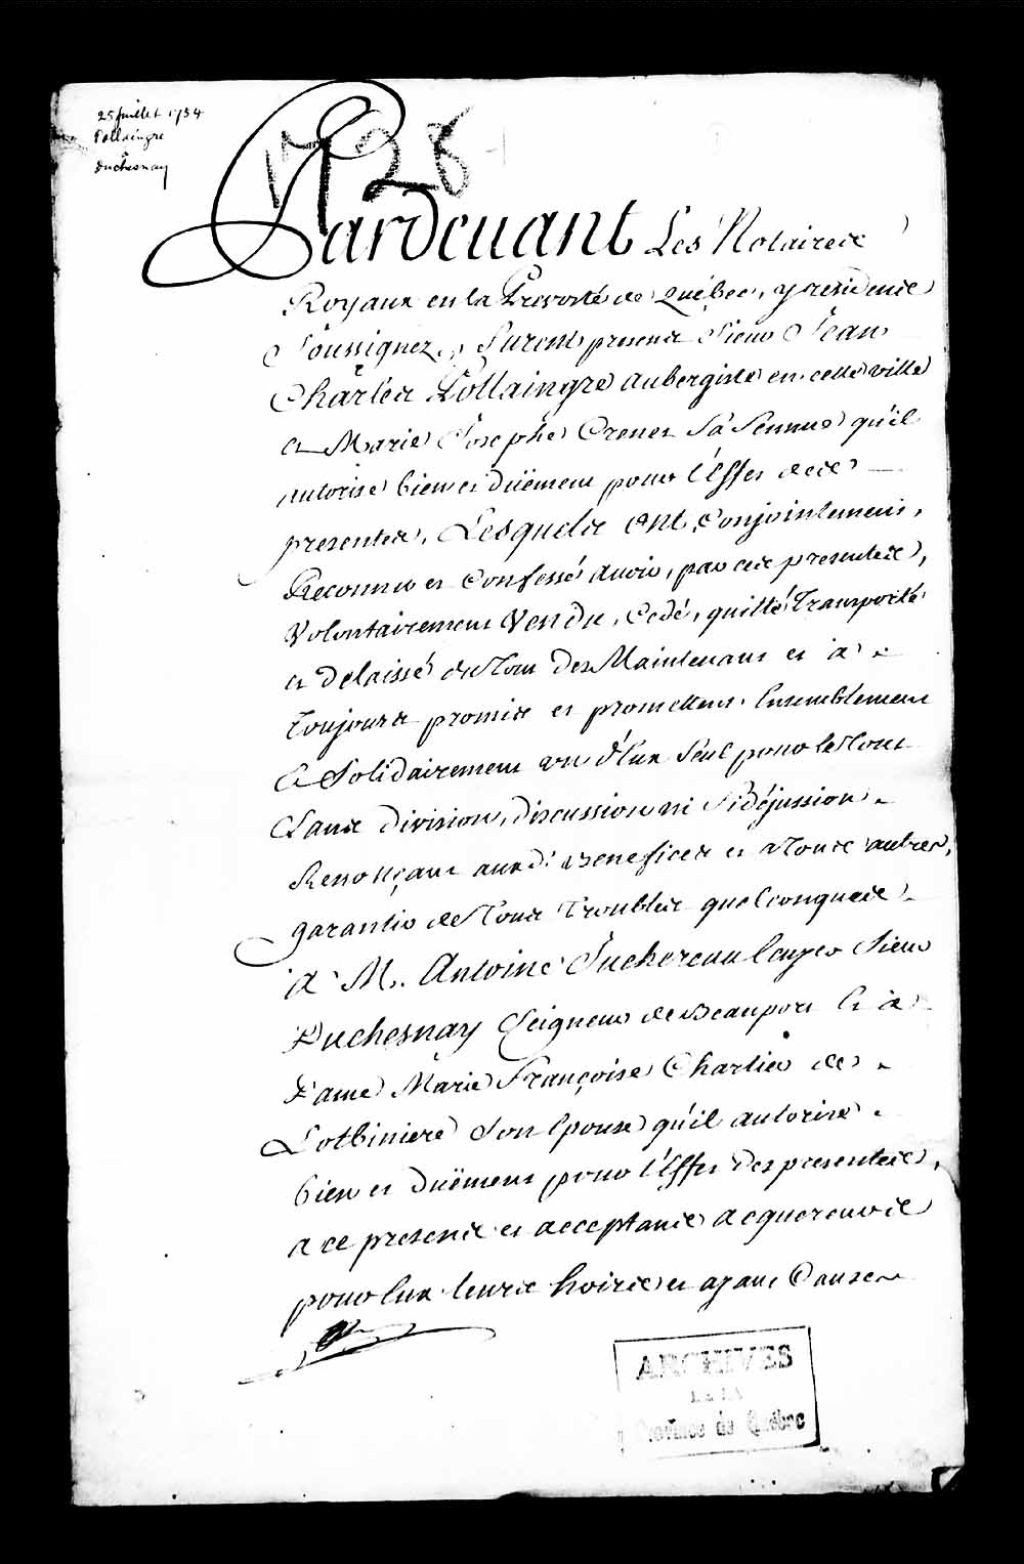 25 Juillet 1734
Pollaingre
à
Duchesnay
1728
Pardevant Les Notaires
Royaux en la Prevosté de Québec, y residens
Soussignez, Furent presens Sieur Jean
Charles Pollaingre aubergiste en cette ville
et Marie Josephe Crenet Sa femme qu'il
autorise bien et düement pour l'Effet de ces
presentes, Lesquels ont Conjointement,
Reconnu et Confessé avoir, par ces presentes,
Volontairement Vendu, Cedé, quitté, Transporté
et delaissé de Tout Des Maintenant et à
Toujours promis et promettent Ensemblement
et Solidairement un d'Eux Seul pour le Tout
Sans division, discussion ni fidéjussion
Renonçant auxd. Benefices et a Tous autres,
garantir de Tous Troubles quelconques
a M. Antoine Juchereau Ecuyer Sieur
Duchesnay Seigneur de Beauport Et à
Dame Marie Françoise Chartier de
Lotbiniere Son Epouse qu'il autorise
bien et duëment pour l'Effet des presentes,
a ce presens et acceptans acquereurs
pour Eux leurs hoirs et ayans Cause
ARCHIVES
DE LA
Province de Québec